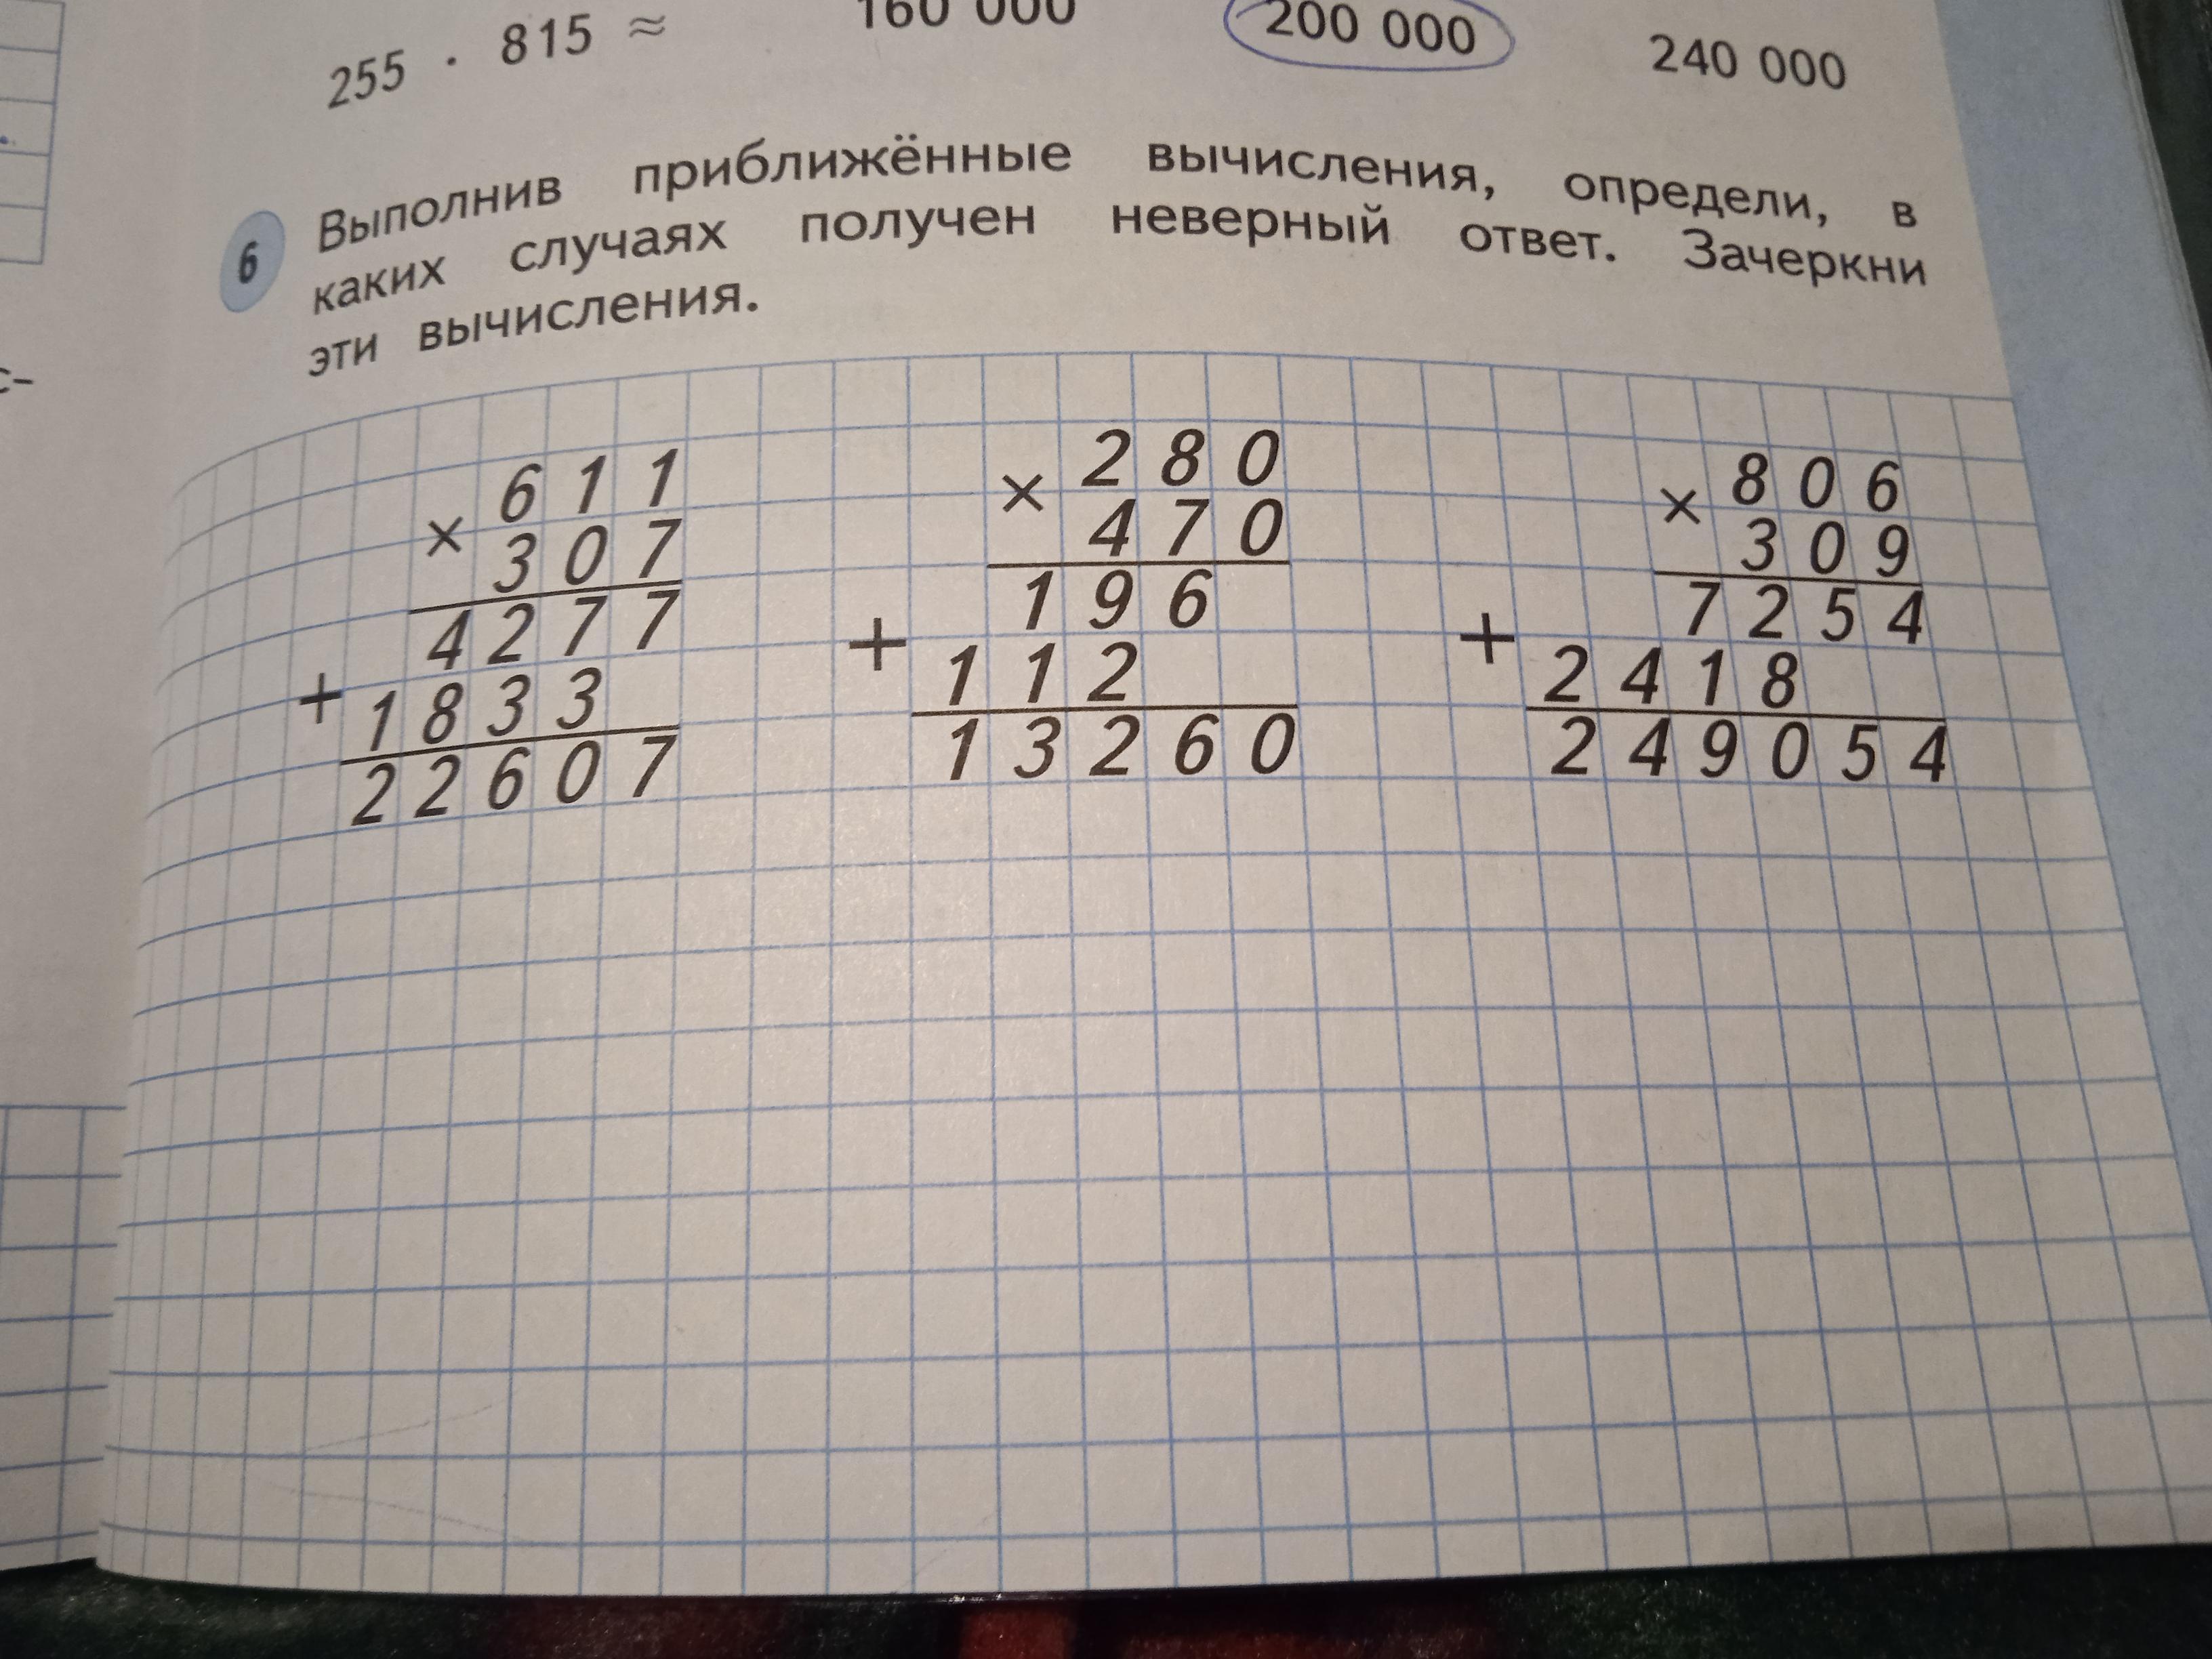 255 · 815 ≈ 160 000 200 000 240 000
6 Выполнив приближённые вычисления, определи, в
каких случаях получен неверный ответ. Зачеркни
эти вычисления.
× 611
307
4277
+ 1833
22607
× 280
470
196
+ 112
13260
× 806
309
7254
+ 2418
249054
с-